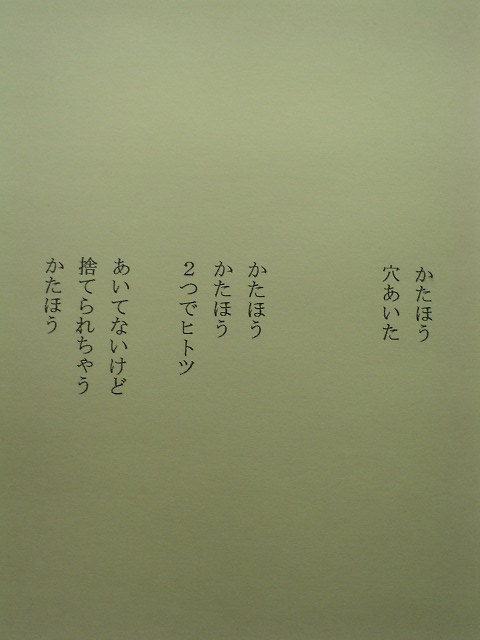 かたほう
穴あいた
かたほう
かたほう
２つでヒトツ
あいてないけど
捨てられちゃう
かたほう